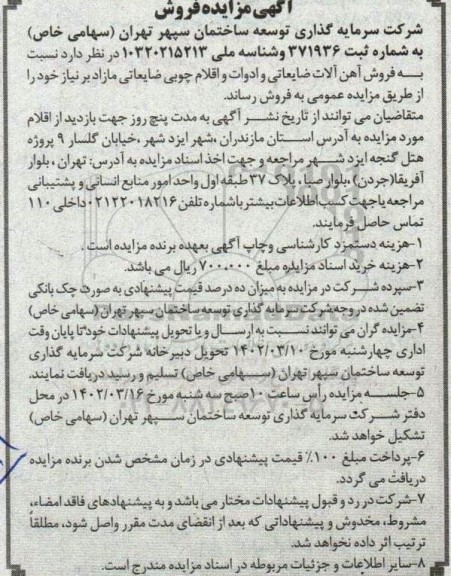 آگهی مزایده فروش
شرکت سرمایه گذاری توسعه ساختمان سپهر تهران (سهامی خاص)
به شماره ثبت ۳۷۱۹۳۶ وشناسه ملی ۱۰۳۲۰۲۱۵۲۱۳ در نظر دارد نسبت
به فروش آهن آلات ضایعاتی و ادوات و اقلام چوبی ضایعاتی مازاد بر نیاز خود را
از طریق مزایده عمومی به فروش رساند.
متقاضیان می توانند از تاریخ نشر آگهی به مدت پنج روز جهت بازدید از اقلام
مورد مزایده به آدرس استان مازندران ،شهر ایزد شهر ،خیابان گلسار ۹ پروژه
هتل گنجه ایزد شهر مراجعه و جهت اخذ اسناد مزایده به آدرس: تهران ، بلوار
آفریقا(جردن) ،بلوار صبا ، پلاک ۳۷ طبقه اول واحد امور منابع انسانی و پشتیبانی
مراجعه یا جهت کسب اطلاعات بیشتر با شماره تلفن ۰۲۱۲۲۰۱۸۲۱۶ داخلی ۱۱۰
تماس حاصل فرمایند.
۱-هزینه دستمزد کارشناسی وچاپ آگهی بعهده برنده مزایده است .
۲-هزینه خرید اسناد مزایده مبلغ ۷۰۰،۰۰۰ ریال می باشد.
۳-سپرده شرکت در مزایده به میزان ده درصد قیمت پیشنهادی به صورت چک بانکی
تضمین شده در وجه شرکت سرمایه گذاری توسعه ساختمان سپهر تهران (سهامی خاص)
۴-مزایده گران می توانند نسبت به ارسال و یا تحویل پیشنهادات خود تا پایان وقت
اداری چهارشنبه مورخ ۱۴۰۲/۰۳/۱۰ تحویل دبیرخانه شرکت سرمایه گذاری
توسعه ساختمان سپهر تهران (سهامی خاص) تسلیم و رسید دریافت نمایند.
۵-جلسه مزایده راس ساعت ۱۰صبح سه شنبه مورخ ۱۴۰۲/۰۳/۱۶ در محل
دفتر شرکت سرمایه گذاری توسعه ساختمان سپهر تهران (سهامی خاص)
تشکیل خواهد شد.
۶-پرداخت مبلغ ۱۰۰٪ قیمت پیشنهادی در زمان مشخص شدن برنده مزایده
دریافت می گردد.
۷-شرکت در رد و قبول پیشنهادات مختار می باشد و به پیشنهادهای فاقد امضاء،
مشروط، مخدوش و پیشنهاداتی که بعد از انقضای مدت مقرر واصل شود، مطلقاً
ترتیب اثر داده نخواهد شد.
۸-سایر اطلاعات و جزئیات مربوطه در اسناد مزایده مندرج است.